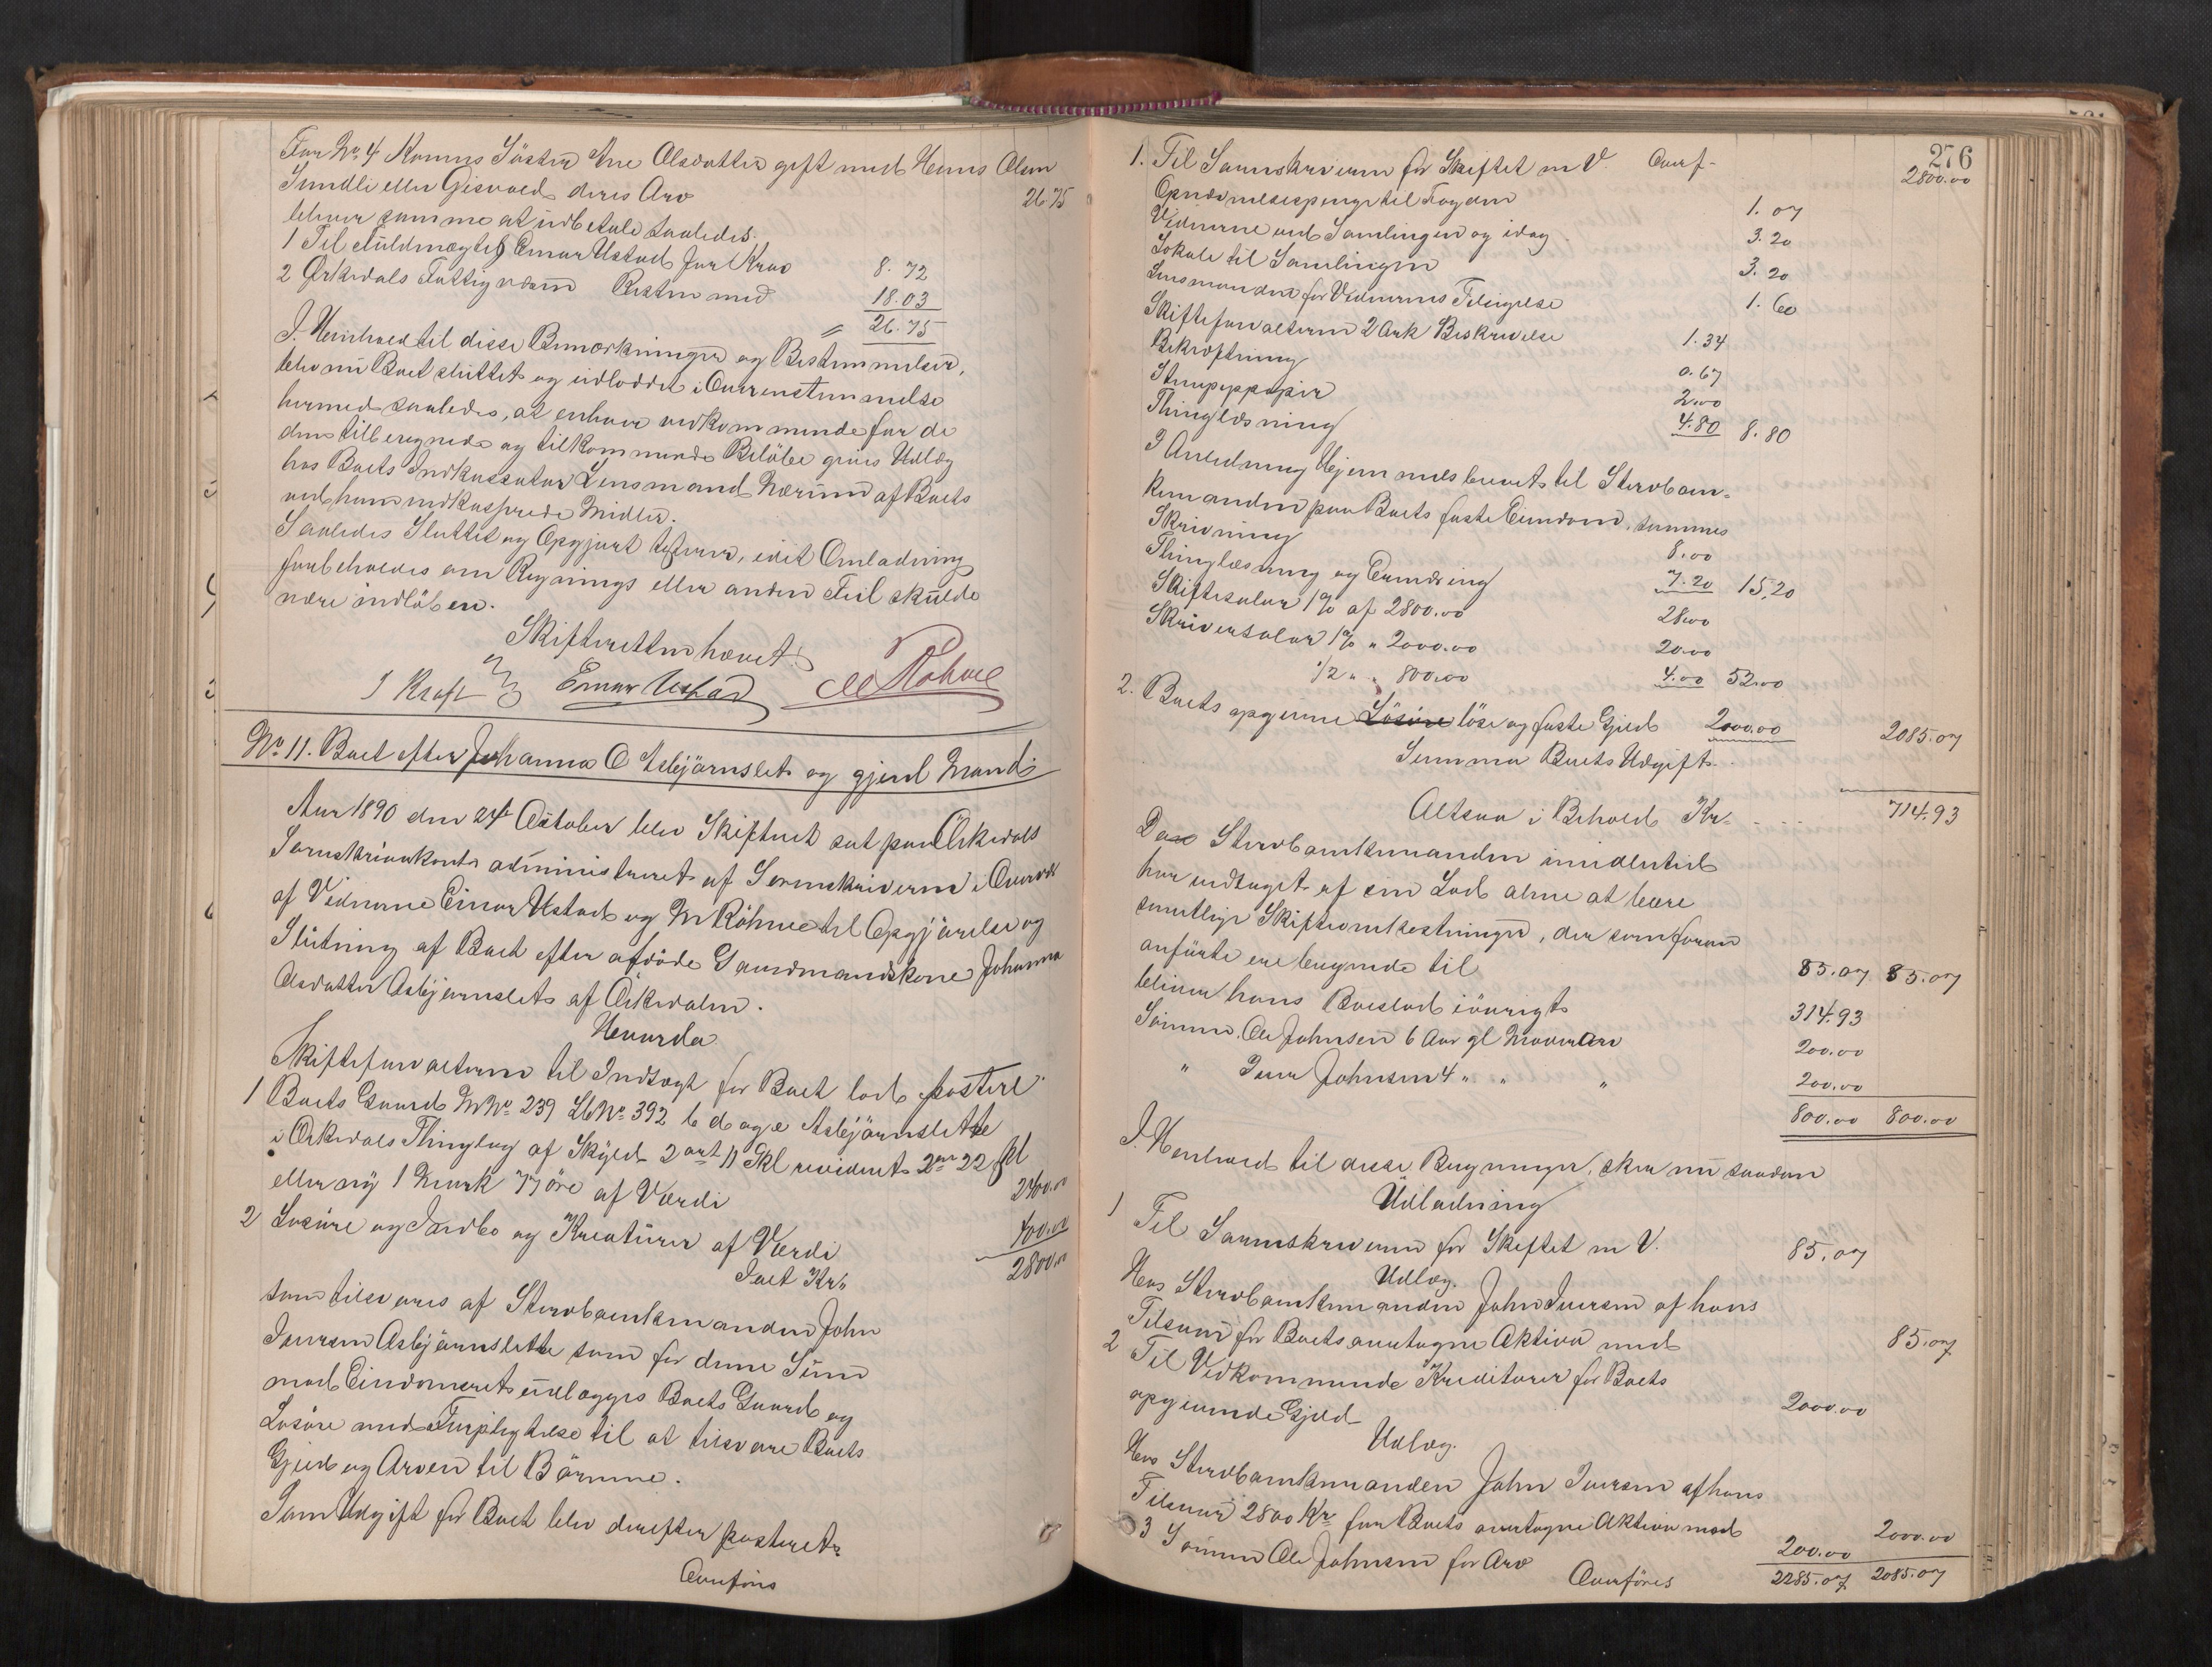 For No 4 Konens Söster Ane Olsdatter gift med Hans Olsen
Sundli eller Gisvold deres Arv 26.75
bliver samme at udbetale saaledes:
1 Til Fuldmægtig Einar Ustad for Krav 8.72
2 Ørkedals Fattigvæsen Resten med 18.03
" 26.75
I Henhold til disse Bemærkninger og Bestemmelser,
blev nu Boet sluttet og udloddet i Overenstemmelse
hermed saaledes, at enhver vedkommende for de
dem tilberegnede og tilkommende Beløbe gives Udlæg
hos Boets Indkassator Lensmand Nerum af Boets
ved ham indkasserede Midler.
Saaledes Sluttet og Opgjort testerer, idet Omladning
forbeholdes om Regnings eller anden Feil skulde
være indløben.
Skifteretten hævet.
J Kraft Einar Ustad M Röhme
No 11. Boet efter Johanna O Asbjörnslet og gjenl Mand
Aar 1890 den 24de October blev Skifteret sat paa Örkedals
Sorenskriverkontor administreret af Sorenskriveren i Overvær
af Vidnerne Einar Ustad og M Röhme til Opgjörelse og
Slutning af Boet efter afdöde Gaardmandskone Johanna
Olsdatter Asbjörnslet af Örkedalen.
Hvorda
Skifteforvalteren til Indtægt for Boet lod postere
1 Boets Gaard M No 239 Lb No 392 b d og e Asbjörnslette
i Örkedals Thinglag af Skyld 2 ort 11 Skl revideret 2 ort 22 skl
eller ny 1 Mark 77 öre af Værdi 2400.00
2 Lösöre og Indbo og Kreaturer af Værdi 400.00
Iact Kr. 2800.00
som tilsvares af Stervboenkemanden John
Iversen Asbjörnslette som for denne Sum
mod Eiendomsret udlægges Boets Gaard og
Lösöre med Forpligtelse til at tilsvare Boets
Gjeld og Arven til Börnene.
Som Udgift for Boet blev derefter posteret:
Overföres
276
1. Til Sorenskriveren for Skiftet m V. Overf- 2800.00
Opnævnelsespenge til Fogden 1.07
Vidnerne ved Samlingen og idag 3.20
Lokale til Samlingen 3.20
Lensmanden for Vidnernes Tilsigelse 1.60
Skifteforvalteren 2 Ark Beskrivelse 1.34
Bekræftning 0.67
Stempeppapir 2.00
Thinglæsning 4.80 8.80
I Anledning Hjemmelsbrevet til Stervboen-
kemanden paa Boets faste Eiendom, sammes
Skrivning 8.00
Thinglæsning og Erindring 7.20 15.20
Skiftesalær 1% af 2800.00 28.00
Skriversalær 1% " 2000.00 20.00
1/2 " " 800.00 4.00 52.00
2. Boets opgivne Lösöre löse og faste Gjeld 2000.00
Summa Boets Udgift 2085.07
Altsaa i Behold Kr. 714.93
Da Stervboenkemanden imidlertid
har vedtaget af sin Lod alene at bære
samtlige Skifteomkostninger, der som foran
anförte ere beregnede til 85.07 85.07
bliver hans Boeslod iövrigt 314.93
Sönnen Ole Johnsen 6 Aar gl Moder Arv 200.00
" Iver Johnsen 4 " " " 200.00
800.00 800.00
I Henhold til disse Beregninger, sker nu saadan
Udladning
1 Til Sorenskriveren for Skiftet m V. 85.07
Udlæg.
Hos Stervboenkemanden John Iversen af hans
Tilsvar for Boets overtagne Aktiva med 85.07
2 Til Vedkommende Kreditorer for Boets
opgivende Gjeld 2000.00
Udlæg.
Hos Stervboenkemanden John Iversen af hans
Tilsvar 2800 Kr for Boets overtagne Aktiva med 2000.00
3 Sönnen Ole Johnsen for Arv 200.00
Overföres 2285.07 2085.07